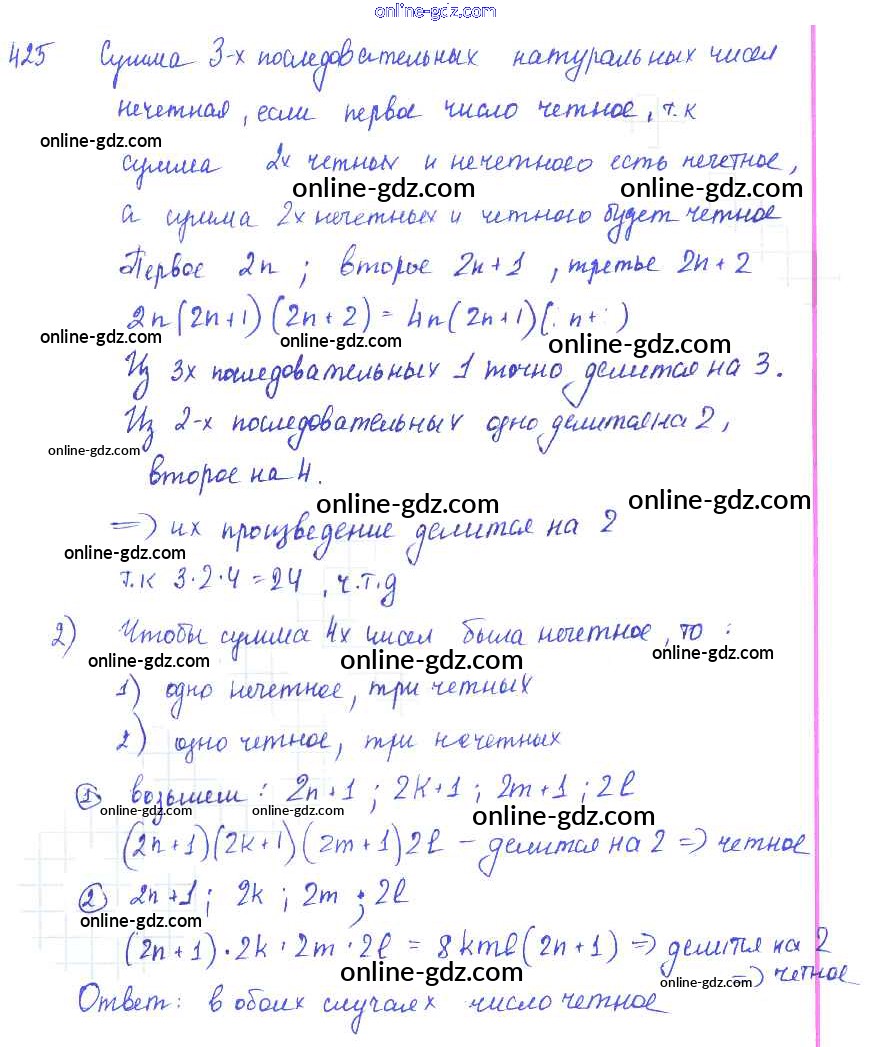 online-gdz.com
425 Сумма 3-х последовательных натуральных чисел
нечетная, если первое число четное, т.к
online-gdz.com
сумма 2х четных и нечетного есть нечетное,
online-gdz.com online-gdz.com
а сумма 2х нечетных и четного будет четное
Первое 2n ; второе 2n+1 , третье 2n+2
2n(2n+1)(2n+2)=4n(2n+1)( n+ )
online-gdz.com online-gdz.com online-gdz.com
Из 3х последовательных 1 точно делится на 3.
Из 2-х последовательных одно делится на 2,
online-gdz.com
второе на 4.
online-gdz.com online-gdz.com
=> их произведение делится на 2
online-gdz.com
т.к 3·2·4=24 , ч.т.д
2) Чтобы сумма 4х чисел была нечетное, то :
online-gdz.com online-gdz.com online-gdz.com
1) одно нечетное, три четных
2) одно четное, три нечетных
① возьмем : 2n+1 ; 2k+1 ; 2m+1 ; 2l
online-gdz.com online-gdz.com online-gdz.com
(2n+1)(2k+1)(2m+1)2l - делится на 2 => четное
② 2n+1 ; 2k ; 2m ; 2l
online-gdz.com
(2n+1)·2k·2m·2l = 8kml(2n+1) => делится на 2
online-gdz.com online-gdz.com => четное
Ответ: в обоих случаях число четное